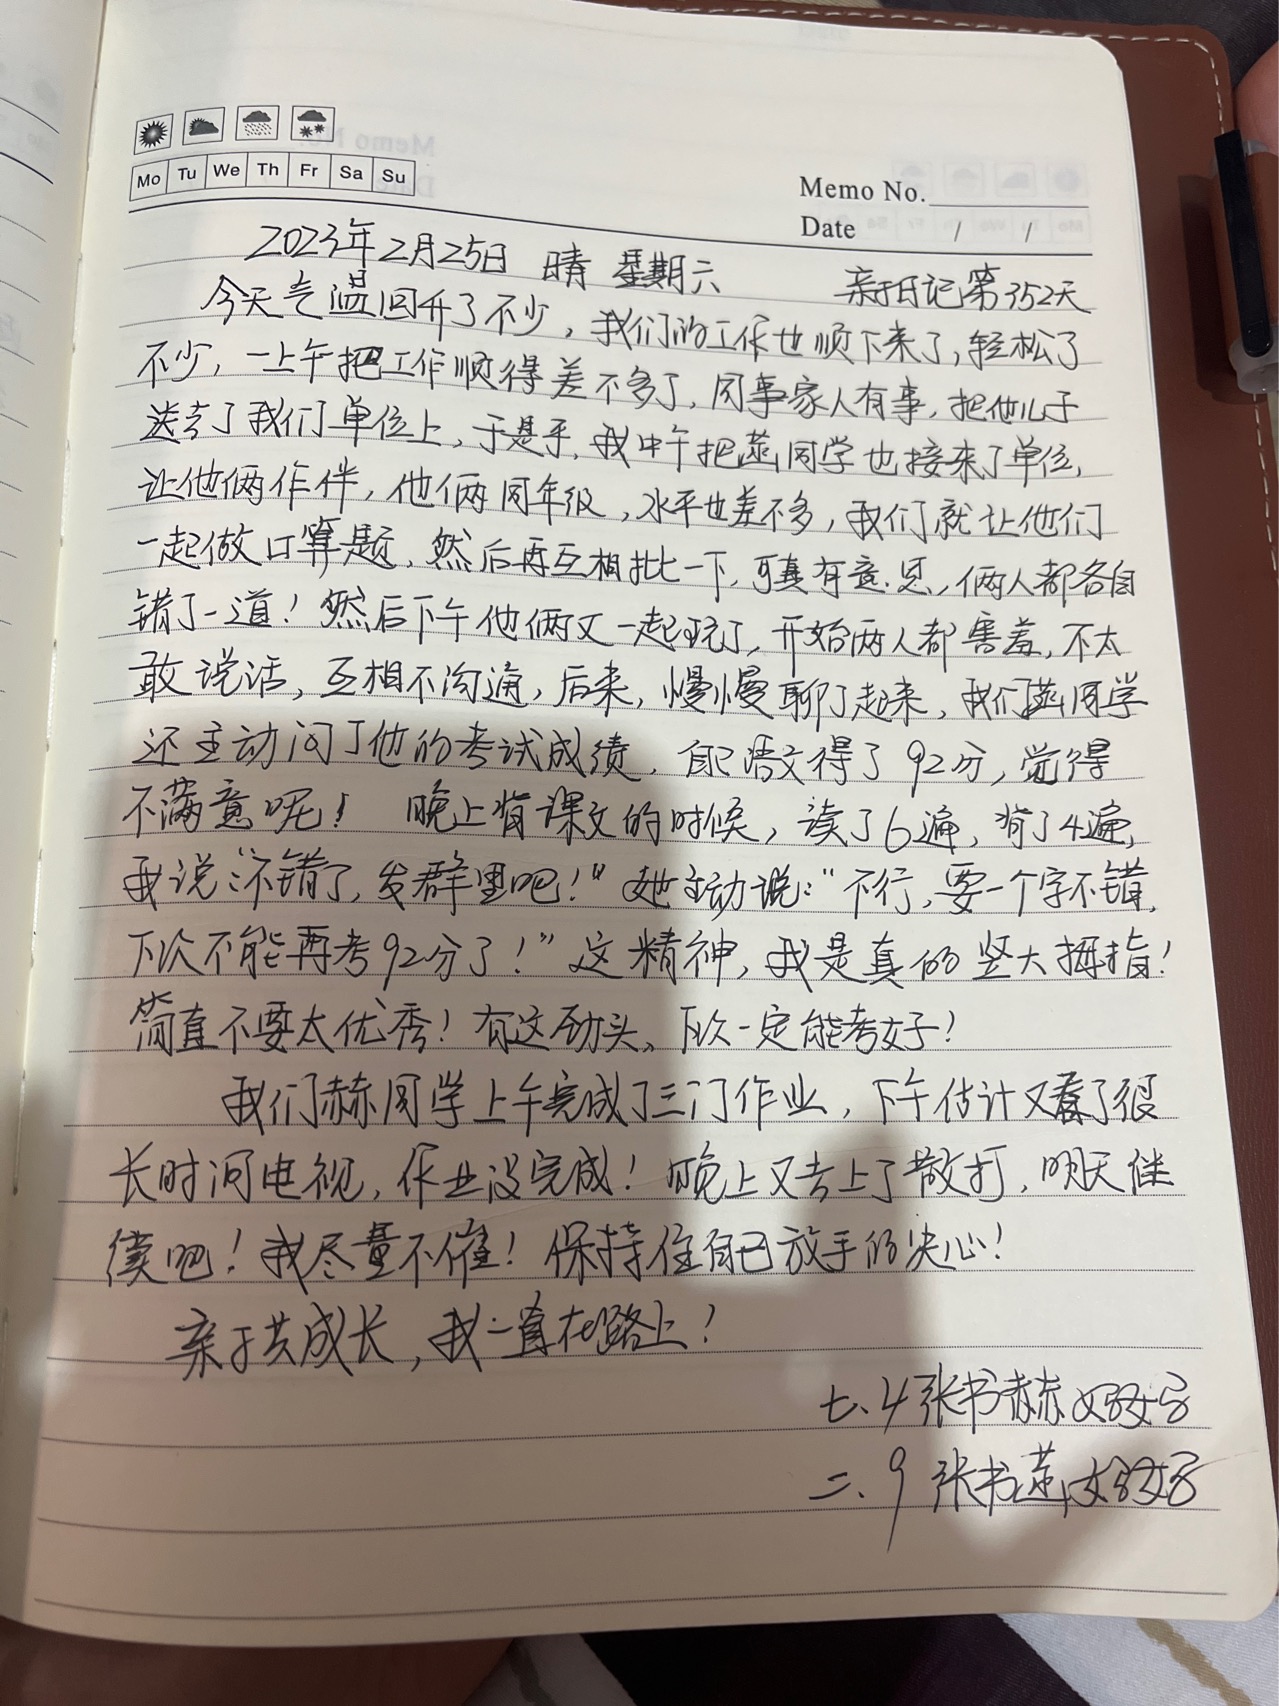 Mo Tu We Th Fr Sa Su
Memo No.
Date / /
2023年2月25日 晴 星期六 亲子日记第352天
今天气温回升了不少，我们的工作也顺下来了，轻松了
不少，一上午把工作顺得差不多了，同事家人有事，把他儿子
送去了我们单位上，于是乎，我中午把菡同学也接来了单位，
让他俩作伴，他俩同年级，水平也差不多，我们就让他们
一起做口算题，然后再互相批一下，可真有意思，俩人都各自
错了一道！然后下午他俩又一起玩了，开始两人都害羞，不太
敢说话，互相不沟通，后来，慢慢聊了起来，我们菡同学
还主动问了他的考试成绩，自己语文得了92分，觉得
不满意呢！ 晚上背课文的时候，读了6遍，背了4遍，
我说：“不错了，发群里吧！”她主动说：“不行，要一个字不错，
下次不能再考92分了！”这精神，我是真的竖大拇指！
简直不要太优秀！有这劲头、下次一定能考好！
我们赫同学上午完成了三门作业，下午估计又看了很
长时间电视，作业没完成！晚上又去上了散打，明天继
续吧！我尽量不催！保持住自己放手的决心！
亲子共成长，我一直在路上！
七、4 张书赫妈妈
二、9 张书菡妈妈